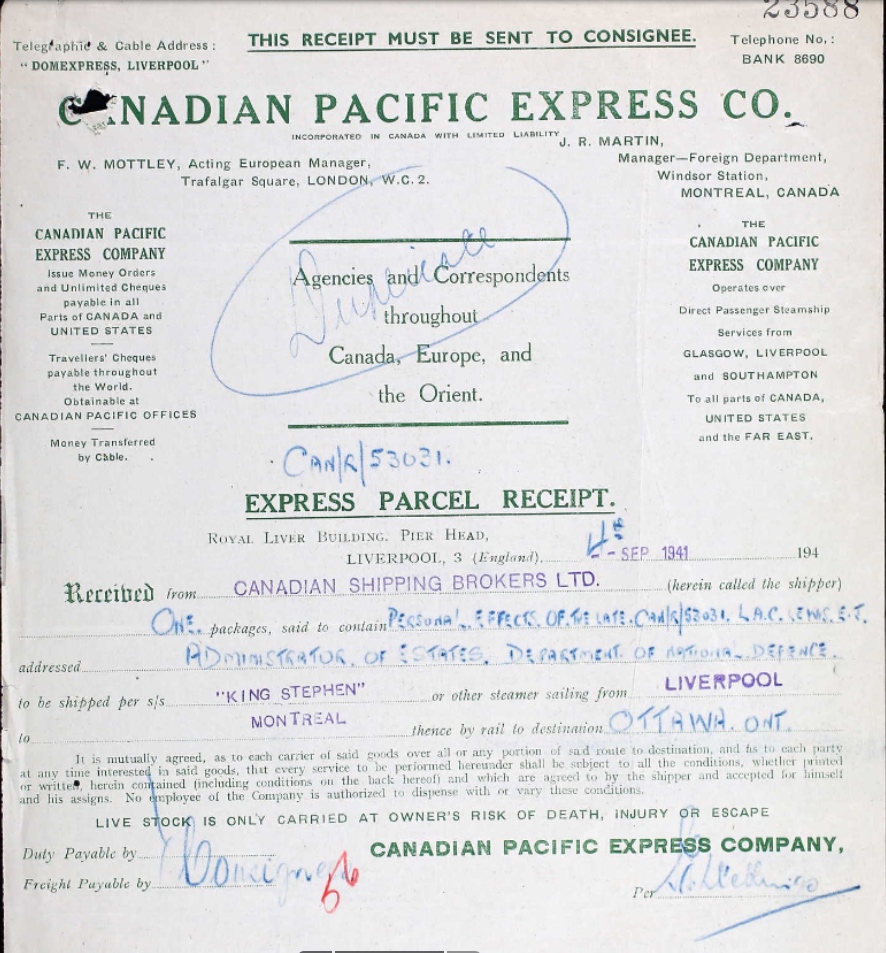 23588
THIS RECEIPT MUST BE SENT TO CONSIGNEE.
Telegraphic & Cable Address :
" DOMEXPRESS, LIVERPOOL "
Telephone No. :
BANK 8690
CANADIAN PACIFIC EXPRESS CO.
INCORPORATED IN CANADA WITH LIMITED LIABILITY
F. W. MOTTLEY, Acting European Manager,
Trafalgar Square, LONDON, W.C. 2.
J. R. MARTIN,
Manager—Foreign Department,
Windsor Station,
MONTREAL, CANADA
THE
CANADIAN PACIFIC
EXPRESS COMPANY
Issue Money Orders
and Unlimited Cheques
payable in all
Parts of CANADA and
UNITED STATES
Travellers' Cheques
payable throughout
the World.
Obtainable at
CANADIAN PACIFIC OFFICES
Money Transferred
by Cable.
Duplicate
Agencies and Correspondents
throughout
Canada, Europe, and
the Orient.
THE
CANADIAN PACIFIC
EXPRESS COMPANY
Operates over
Direct Passenger Steamship
Services from
GLASGOW, LIVERPOOL
and SOUTHAMPTON
To all parts of CANADA,
UNITED STATES
and the FAR EAST.
CAN/R/53031.
EXPRESS PARCEL RECEIPT.
ROYAL LIVER BUILDING. PIER HEAD,
LIVERPOOL, 3 (England), 4th - SEP 1941 194
Received from CANADIAN SHIPPING BROKERS LTD. (herein called the shipper)
ONE. packages, said to contain PERSONAL EFFECTS. OF THE LATE. CAN/R/53031. L.A.C. LEWIS. E.J.
addressed ADMINISTRATOR. OF ESTATES. DEPARTMENT. OF NATIONAL DEFENCE.
to be shipped per s/s "KING STEPHEN" or other steamer sailing from LIVERPOOL
to MONTREAL thence by rail to destination OTTAWA. ONT.
It is mutually agreed, as to each carrier of said goods over all or any portion of said route to destination, and as to each party
at any time interested in said goods, that every service to be performed hereunder shall be subject to all the conditions, whether printed
or written, herein contained (including conditions on the back hereof) and which are agreed to by the shipper and accepted for himself
and his assigns. No employee of the Company is authorized to dispense with or vary these conditions.
LIVE STOCK IS ONLY CARRIED AT OWNER'S RISK OF DEATH, INJURY OR ESCAPE
Duty Payable by
CANADIAN PACIFIC EXPRESS COMPANY,
Freight Payable by Consignee
56
Per